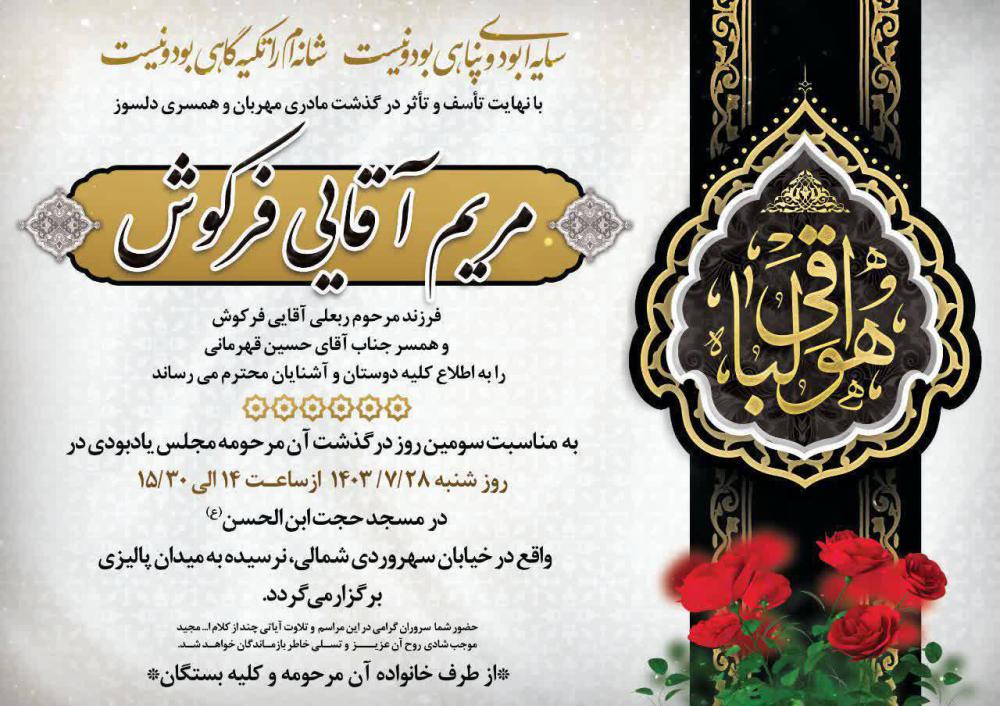 سایه ای بود و پناهی بود و نیست شانه ام را تکیه گاهی بود و نیست
با نهایت تأسف و تأثر درگذشت مادری مهربان و همسری دلسوز
مریم آقایی فرکوش
فرزند مرحوم ربعلی آقایی فرکوش
و همسر جناب آقای حسین قهرمانی
را به اطلاع کلیه دوستان و آشنایان محترم می رساند
به مناسبت سومین روز درگذشت آن مرحومه مجلس یادبودی در
روز شنبه ۱۴۰۳/۷/۲۸ از ساعت ۱۴ الی ۱۵/۳۰
در مسجد حجت ابن الحسن (ع)
واقع در خیابان سهروردی شمالی، نرسیده به میدان پالیزی
برگزار می گردد.
حضور شما سروران گرامی در این مراسم و تلاوت آیاتی چند از کلام ا... مجید
موجب شادی روح آن عزیز و تسلی خاطر بازماندگان خواهد شد.
*از طرف خانواده آن مرحومه و کلیه بستگان*
هو الباقی